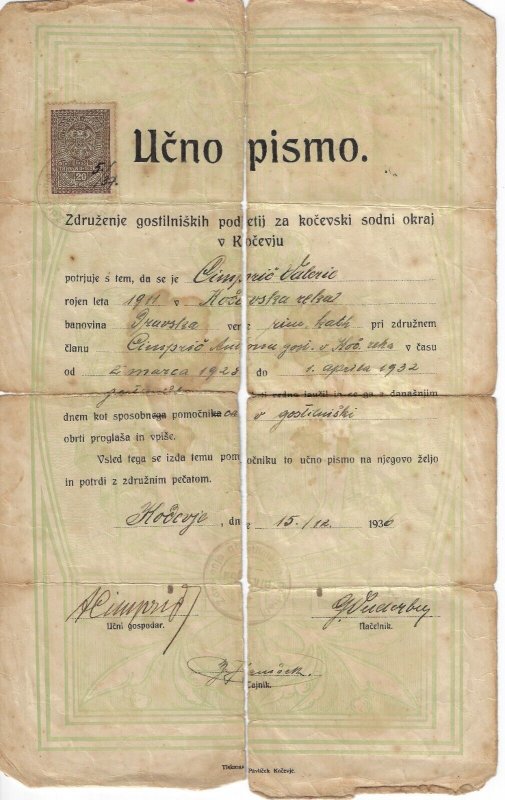 20
Učno pismo.
Združenje gostilniških podjetij za kočevski sodni okraj
v Kočevju
potrjuje s tem, da se je Cimprič Valerie
rojen leta 1911 v Kočevska reka
banovina Dravska vere rim. kath. pri združnem
članu Cimprič gost. v Koč. reka v času
od marca 1928 do 1. aprila 1932
se ga z današnjim
dnem kot sposobnega pomočnika ca v gostilniški
obrti proglaša in vpiše.
Vsled tega se izda temu pomočniku to učno pismo na njegovo željo
in potrdi z združnim pečatom.
Kočevje, dne 15./12. 1936
A Cimprič
Učni gospodar.
Načelnik.
Tiskarna Pavliček Kočevje.